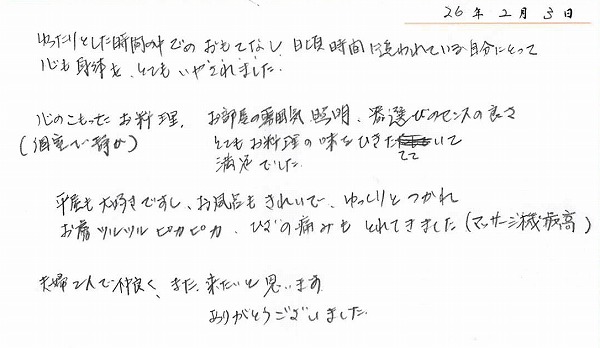 26年2月3日
ゆったりとした時間の中でのおもてなし、日頃時間に追われている自分にとって
心も身体も、とてもいやされました。
心のこもったお料理、お部屋の雰囲気、照明、器選びのセンスの良さ
(個室で静か) とてもお料理の味をひきたてていて
満足でした。
平屋も大好きですし、お風呂もきれいで、ゆっくりとつかれ
お膚ツルツルピカピカ、ひざの痛みもとれてきました(マッサージ機最高)
夫婦2人で仲良く、また、来たいと思います
ありがとうございました。